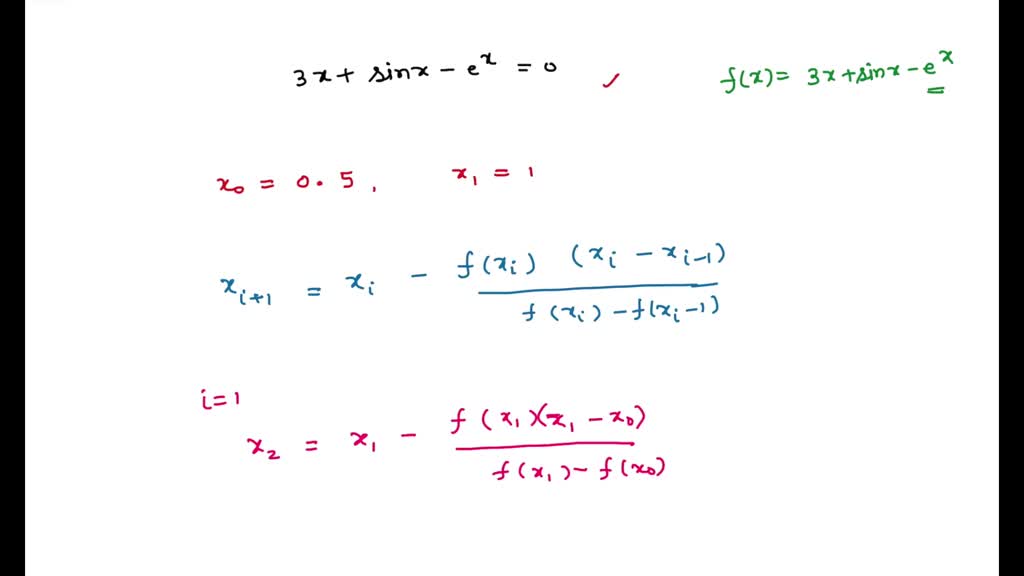 3x + sinx − eˣ = 0 ✓ f(x) = 3x + sinx − eˣ
x₀ = 0.5 , x₁ = 1
xᵢ₊₁ = xᵢ − f(xᵢ) (xᵢ − xᵢ₋₁)
f(xᵢ) − f(xᵢ−1)
i=1
x₂ = x₁ − f(x₁)(x₁ − x₀)
f(x₁) − f(x₀)